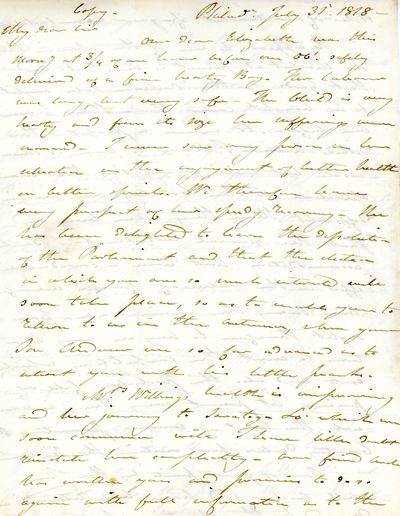 Copy. Philad. July 31st 1818 —
My dear Sir
Our dear Elizabeth was this
Morng at 3/4 of an hour before one OC. safely
delivered of a fine hearty Boy. Her labour
was long, but very safe. The Child is very
hearty and from its size her sufferings were
I never saw any person in her
situation in the enjoyment of better health
or better spirits. We therefore have
every prospect of her speedy recovery. She
has been delighted to learn the dissolution
of the Parliament and that the election
in which you are so much interested will
soon take place, so as to enable you to
return to us in the Autumn, when your
Son Andrew will be so far advanced as to
you with his little
Mrs Willing's health is improving
and her journey to Saratoga &c which will
soon commence will I have little doubt
reinstate her completely. Our friend
has written you and promises to do so
again with full information as to the